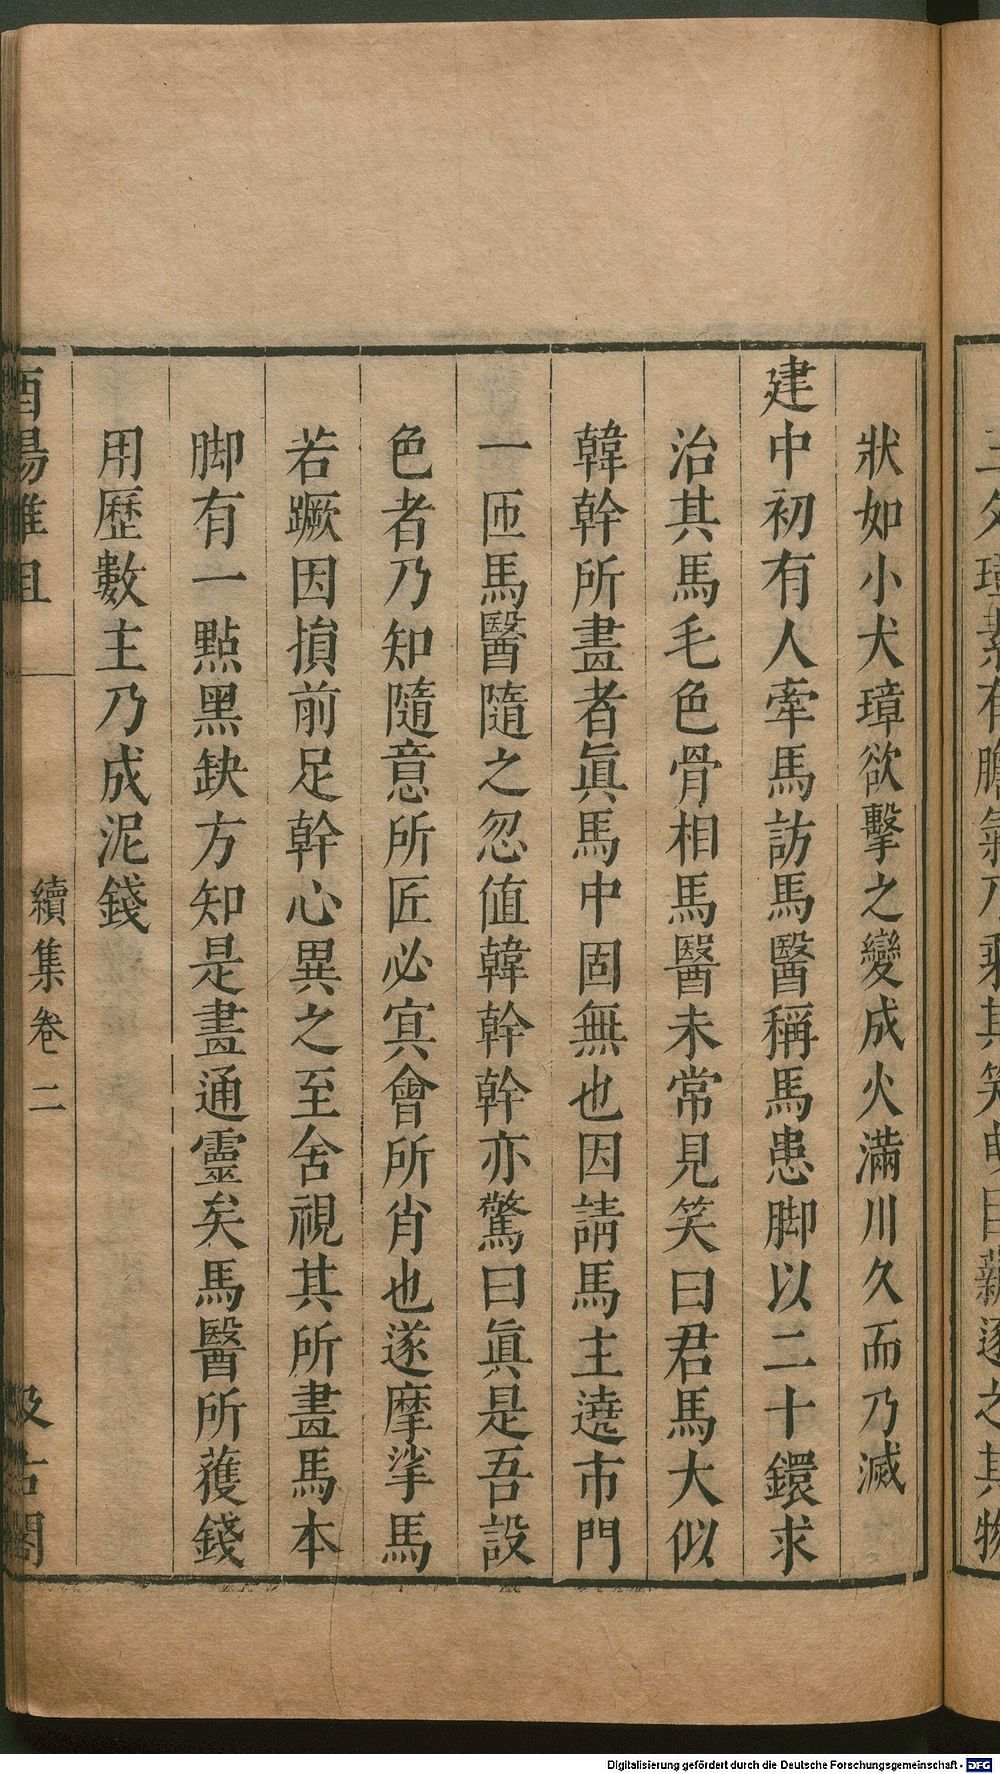 狀如小犬璋欲擊之變成火滿川久而乃滅
建中初有人牽馬訪馬醫稱馬患脚以二十鐶求
治其馬毛色骨相馬醫未常見笑曰君馬大似
韓幹所畫者眞馬中固無也因請馬主遶市門
一匝馬醫隨之忽值韓幹幹亦驚曰眞是吾設
色者乃知隨意所匠必冥會所肖也遂摩挲馬
若蹶因損前足幹心異之至舍視其所畫馬本
脚有一點黑缺方知是畫通靈矣馬醫所獲錢
用歷數主乃成泥錢
酉陽雜俎 續集卷二 汲古閣
Digitalisierung gefördert durch die Deutsche Forschungsgemeinschaft - DFG